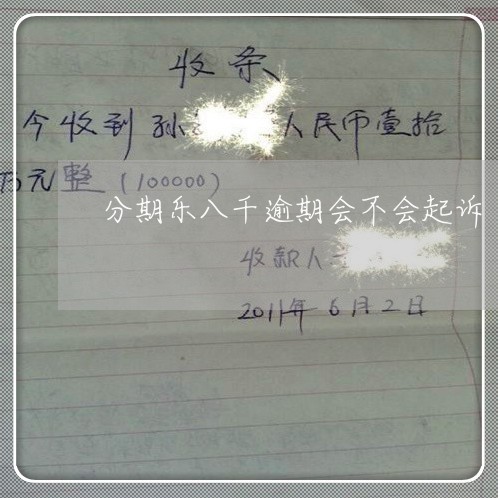 收条
今收到孙 人民币壹拾
万元整（100000）
分期乐八千逾期会不会起诉
收款人
2011年6月2日